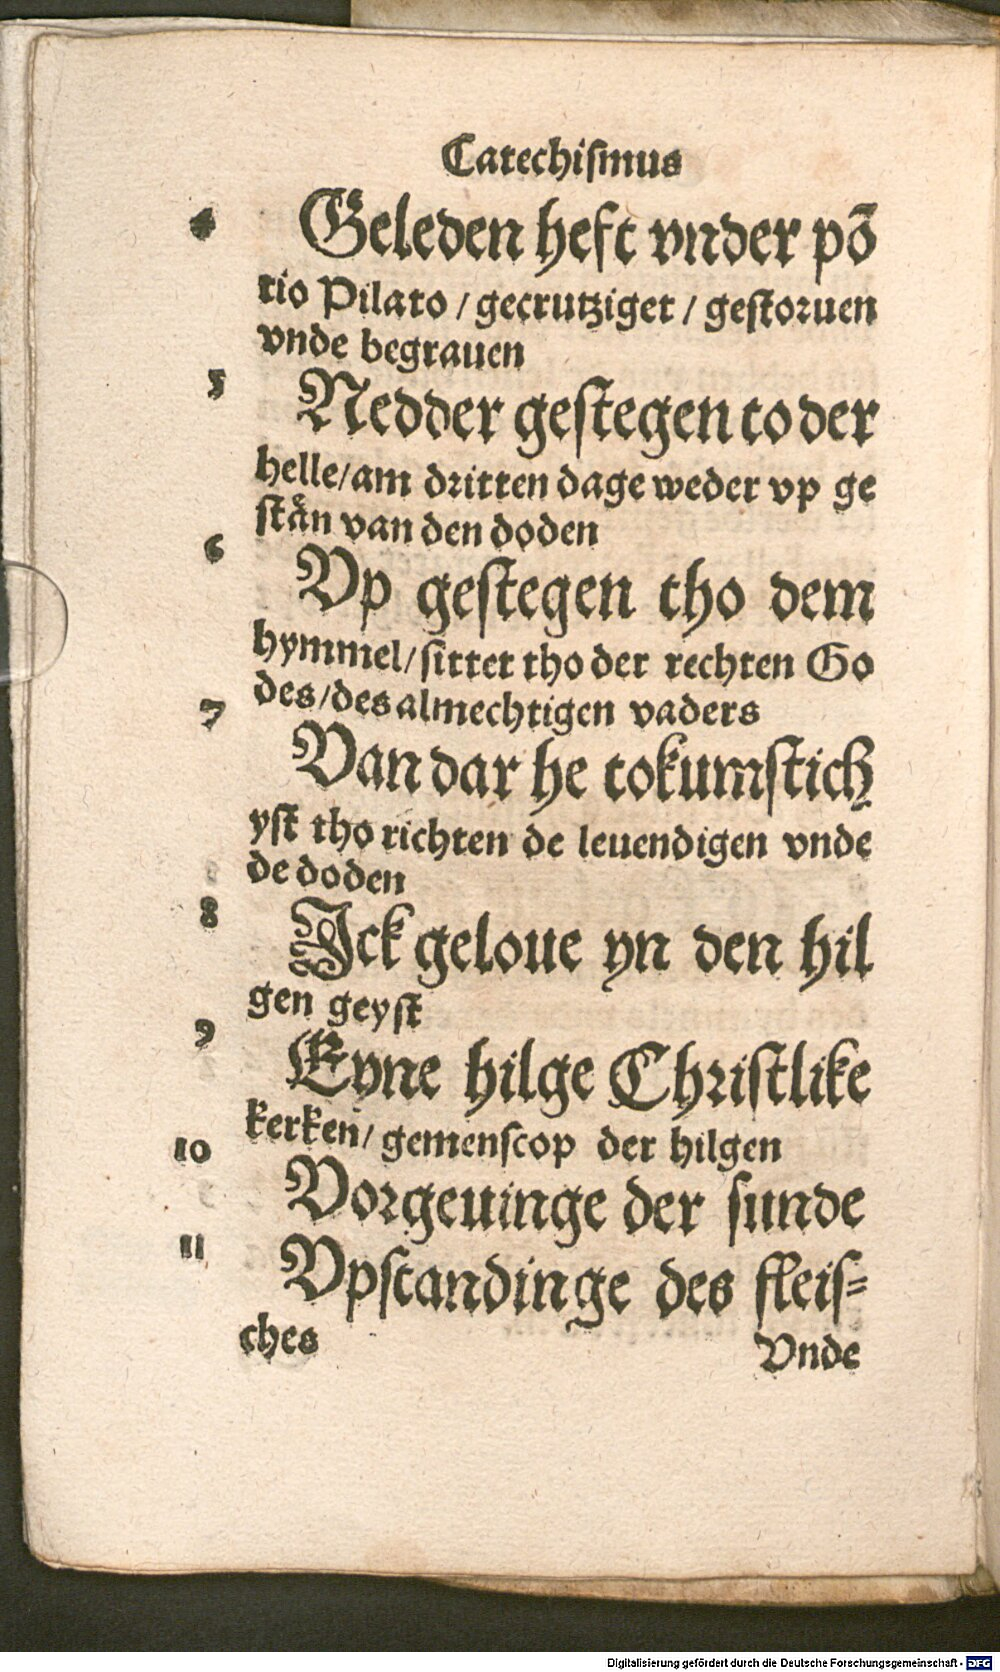 Catechiſmus
4 Geleden heft vnder pō
tio Pilato / gecrutziget / geſtoruen
vnde begrauen
5 Nedder geſtegen to der
helle/am dritten dage weder vp ge
ſtån van den doden
6 Vp geſtegen tho dem
hymmel/ſittet tho der rechten Go
des/des almechtigen vaders
7 Van dar he tokumſtich
yſt tho richten de leuendigen vnde
de doden
8 Ick geloue yn den hil
gen geyſt
9 Eyne hilge Chriſtlike
kerken/ gemenſcop der hilgen
10 Vorgeuinge der ſunde
11 Vpſtandinge des fleiſ-
ches
Vnde
Digitalisierung gefördert durch die Deutsche Forschungsgemeinschaft - DFG